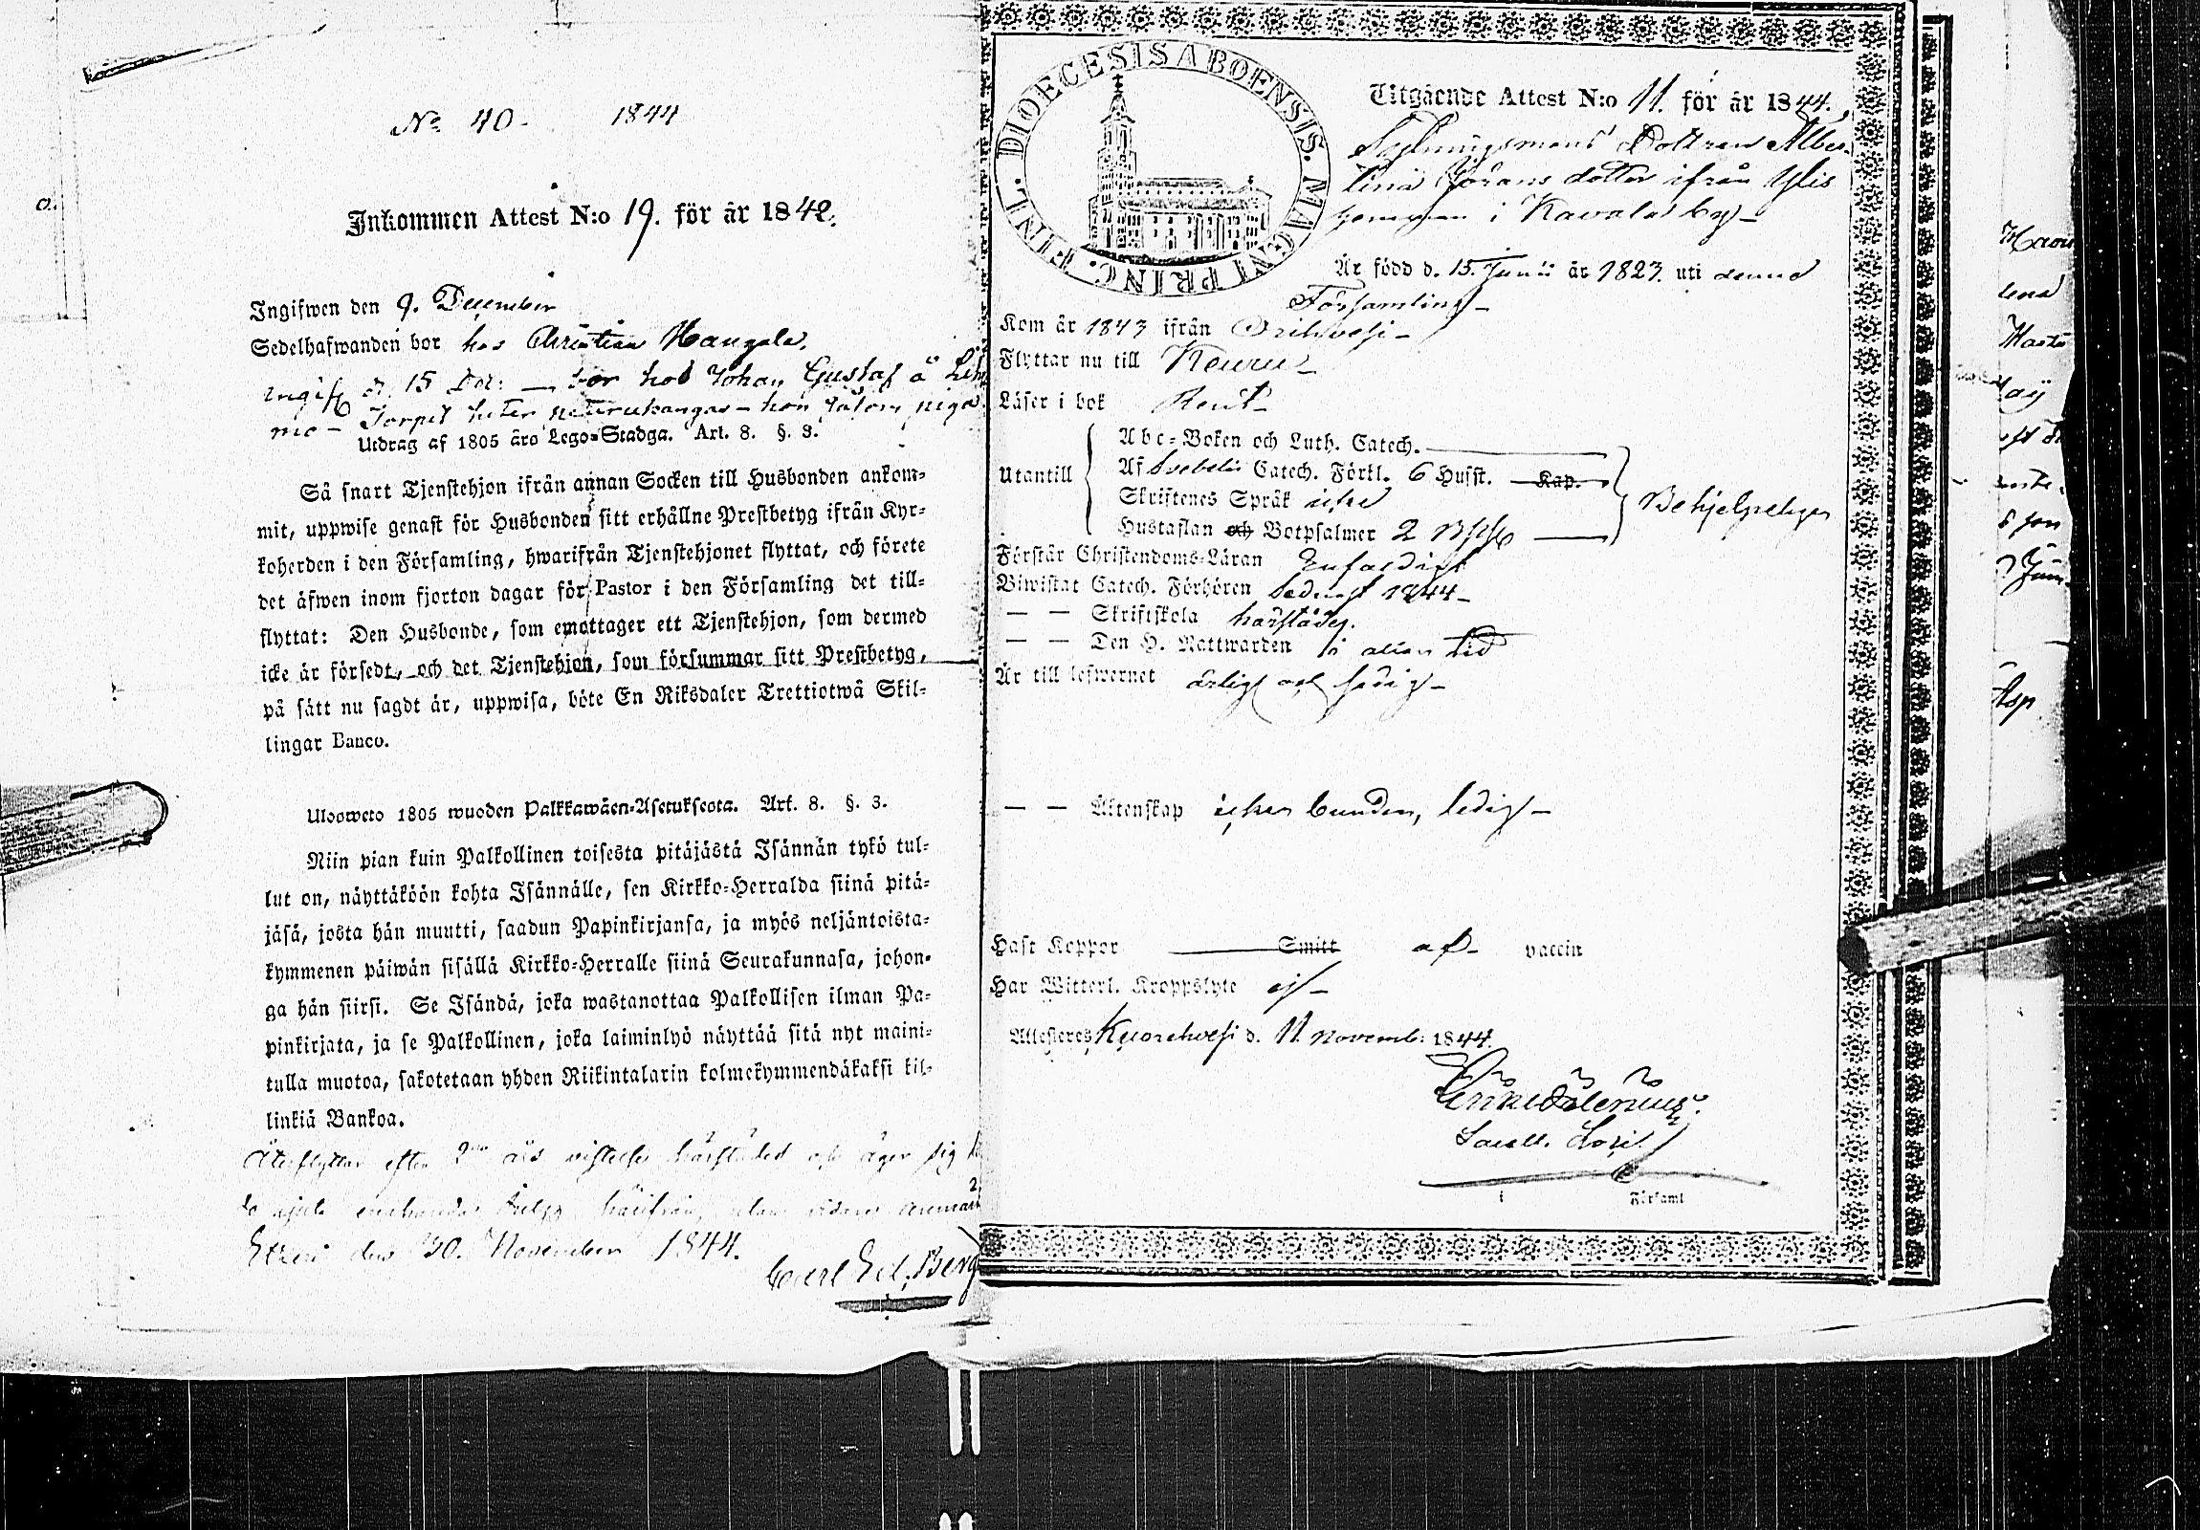 No 40. 1844
Inkommen Attest N:o 19. för år 1842.
Ingifwen den 9. December
Sedelhafwanden bor hos Christian Hangala.
ingif. d. 15 Dec: — bor hos Johan Gustaf å
Torpet heter
Utdrag af 1805 års Lego-Stadga. Art. 8. §. 3.
Så snart Tjenstehjon ifrån annan Socken till Husbonden ankom-
mit, uppwise genast för Husbonden sitt erhållne Prestbetyg ifrån Kyr-
koherden i den Församling, hwarifrån Tjenstehjonet flyttat, och förete
det äfwen inom fjorton dagar för Pastor i den Församling det till-
flyttat: Den Husbonde, som emottager ett Tjenstehjon, som dermed
icke är försedt, och det Tjenstehjon, som försummar sitt Prestbetyg,
på sätt nu sagdt är, uppwisa, böte En Riksdaler Trettiotwå Skil-
lingar Banco.
Ulosweto 1805 wuoden Palkkawäen-Asetuksesta. Art. 8. §. 3.
Niin pian kuin Palkollinen toisesta pitäjästä Isännän tykö tul-
lut on, näyttäköön kohta Isännälle, sen Kirkko-Herralda siinä pitä-
jäsä, josta hän muutti, saadun Papinkirjansa, ja myös neljäntoista-
kymmenen päiwän sisällä Kirkko-Herralle siinä Seurakunnasa, johon-
ga hän siirsi. Se Isändä, joka wastanottaa Palkollisen ilman Pa-
pinkirjata, ja se Palkollinen, joka laiminlyö näyttää sitä nyt maini-
tulla muotoa, sakotetaan yhden Riikintalarin kolmekymmendäkaksi kil-
linkiä Bankoa.
Återflyttar efter 2ne års vistelse härstädes och äger sig
härifrån, utan vidare
Etseri den 30. November 1844.
Carl Ed. Berg
DIOECESIS ABOENSIS. MAGNI PRINC. FINL.
Utgående Attest N:o 11. för år 1844.
Dottren Alber-
tina Jörans dotter ifrån Ylis
hemman i Kavala by
Är född d. 15. Junii år 1823. uti denna
Församling
Kom år 1843 ifrån Orihvesi
Flyttar nu till Keuru
Läser i bok Rent
Utantill
Abc-Boken och Luth. Catech.
Af Svebelii Catech. Förkl. 6 Husst. Kap.
Skriftenes Språk icke
Hustaflan och Botpsalmer 2
Behjelpeligen
Förstår Christendoms-Läran Enfaldigt
Biwistat Catech. Förhören sednast 1844
— — Skriftskola härstädes.
— — Den H. Nattwarden i allan tid
Är till lefwernet ärlig och
— — Äktenskap icke bunden, ledig
Haft Koppor Smitt af vaccin
Har Witterl. Kroppslyte ej
Attesteres Kuorehvesi d. 11. Novemb: 1844.
Sacell.
i Församl